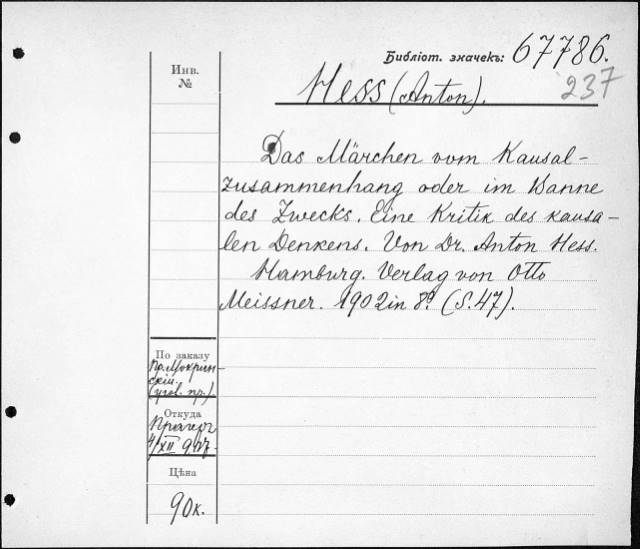 Библіот. значекъ: 67786.
237
Инв.
№
Hess (Anton).
Das Märchen vom Kausal-
zusammenhang oder im Banne
des Zwecks. Eine Kritik des kausa-
len Denkens. Von Dr. Anton Hess.
Hamburg. Verlag von Otto
Meissner. 1902 in 8º. (S. 47).
По заказу
Пр. Мокрин-
скій.
(угол. пр.)
Откуда
Прагеръ
4/XII
Цѣна
90 к.